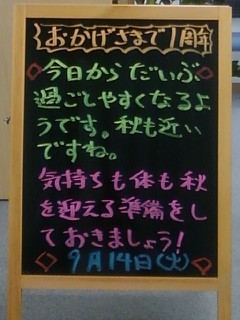 おかげさまで1周年
今日からだいぶ
過ごしやすくなるよ
うです。秋も近い
ですね。
気持ちも体も秋
を迎える準備をし
ておきましょう!
9月14日(火)